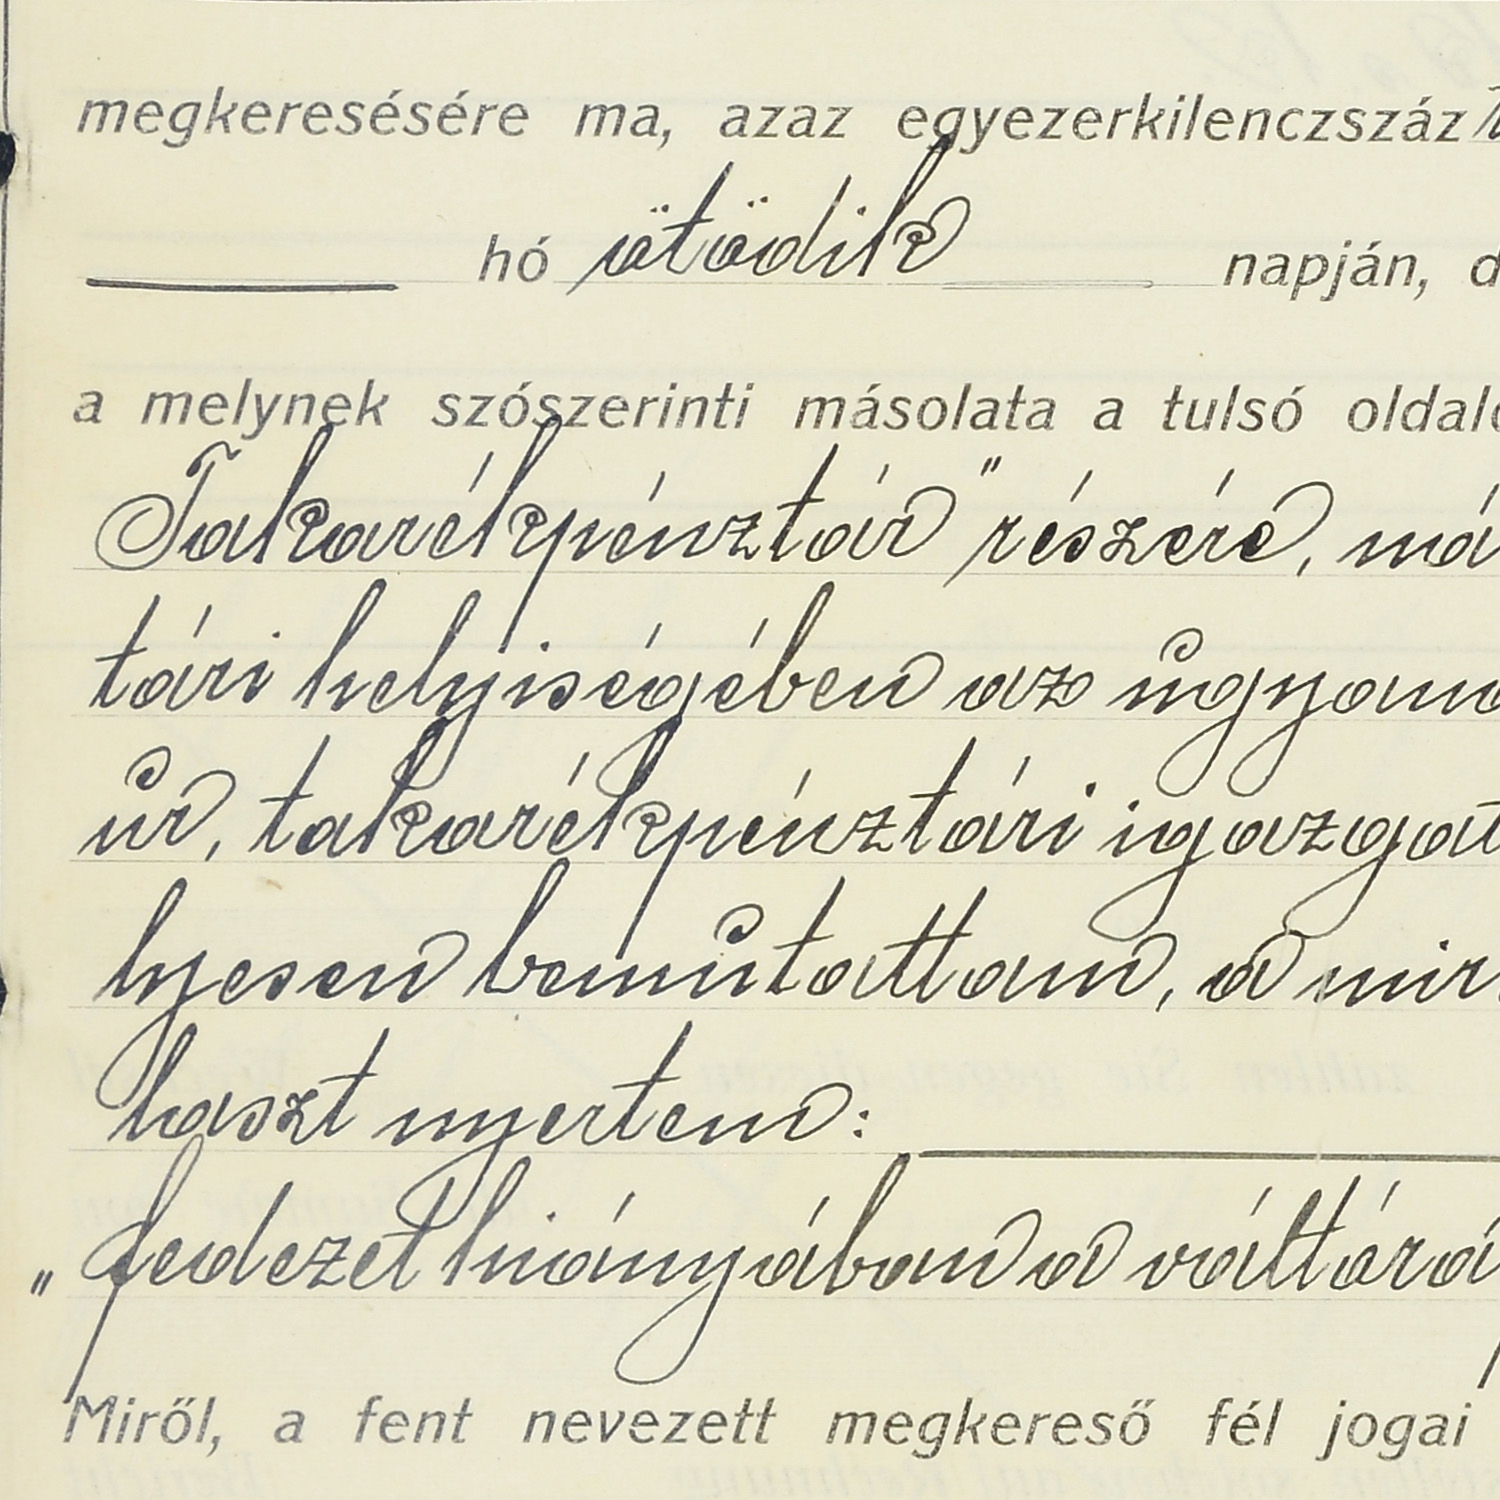 megkeresésére ma, azaz egyezerkilenczszáz
hó ötödik napján, d
a melynek szószerinti másolata a tulsó oldalo
Takarékpénztár" részére, má
tári helyiségében az ugyana
úr, takarékpénztári igazgat
lyesen bemutattam, a mir
laszt nyertem:
„fedezet hiányában a váltára
Miről, a fent nevezett megkereső fél jogai